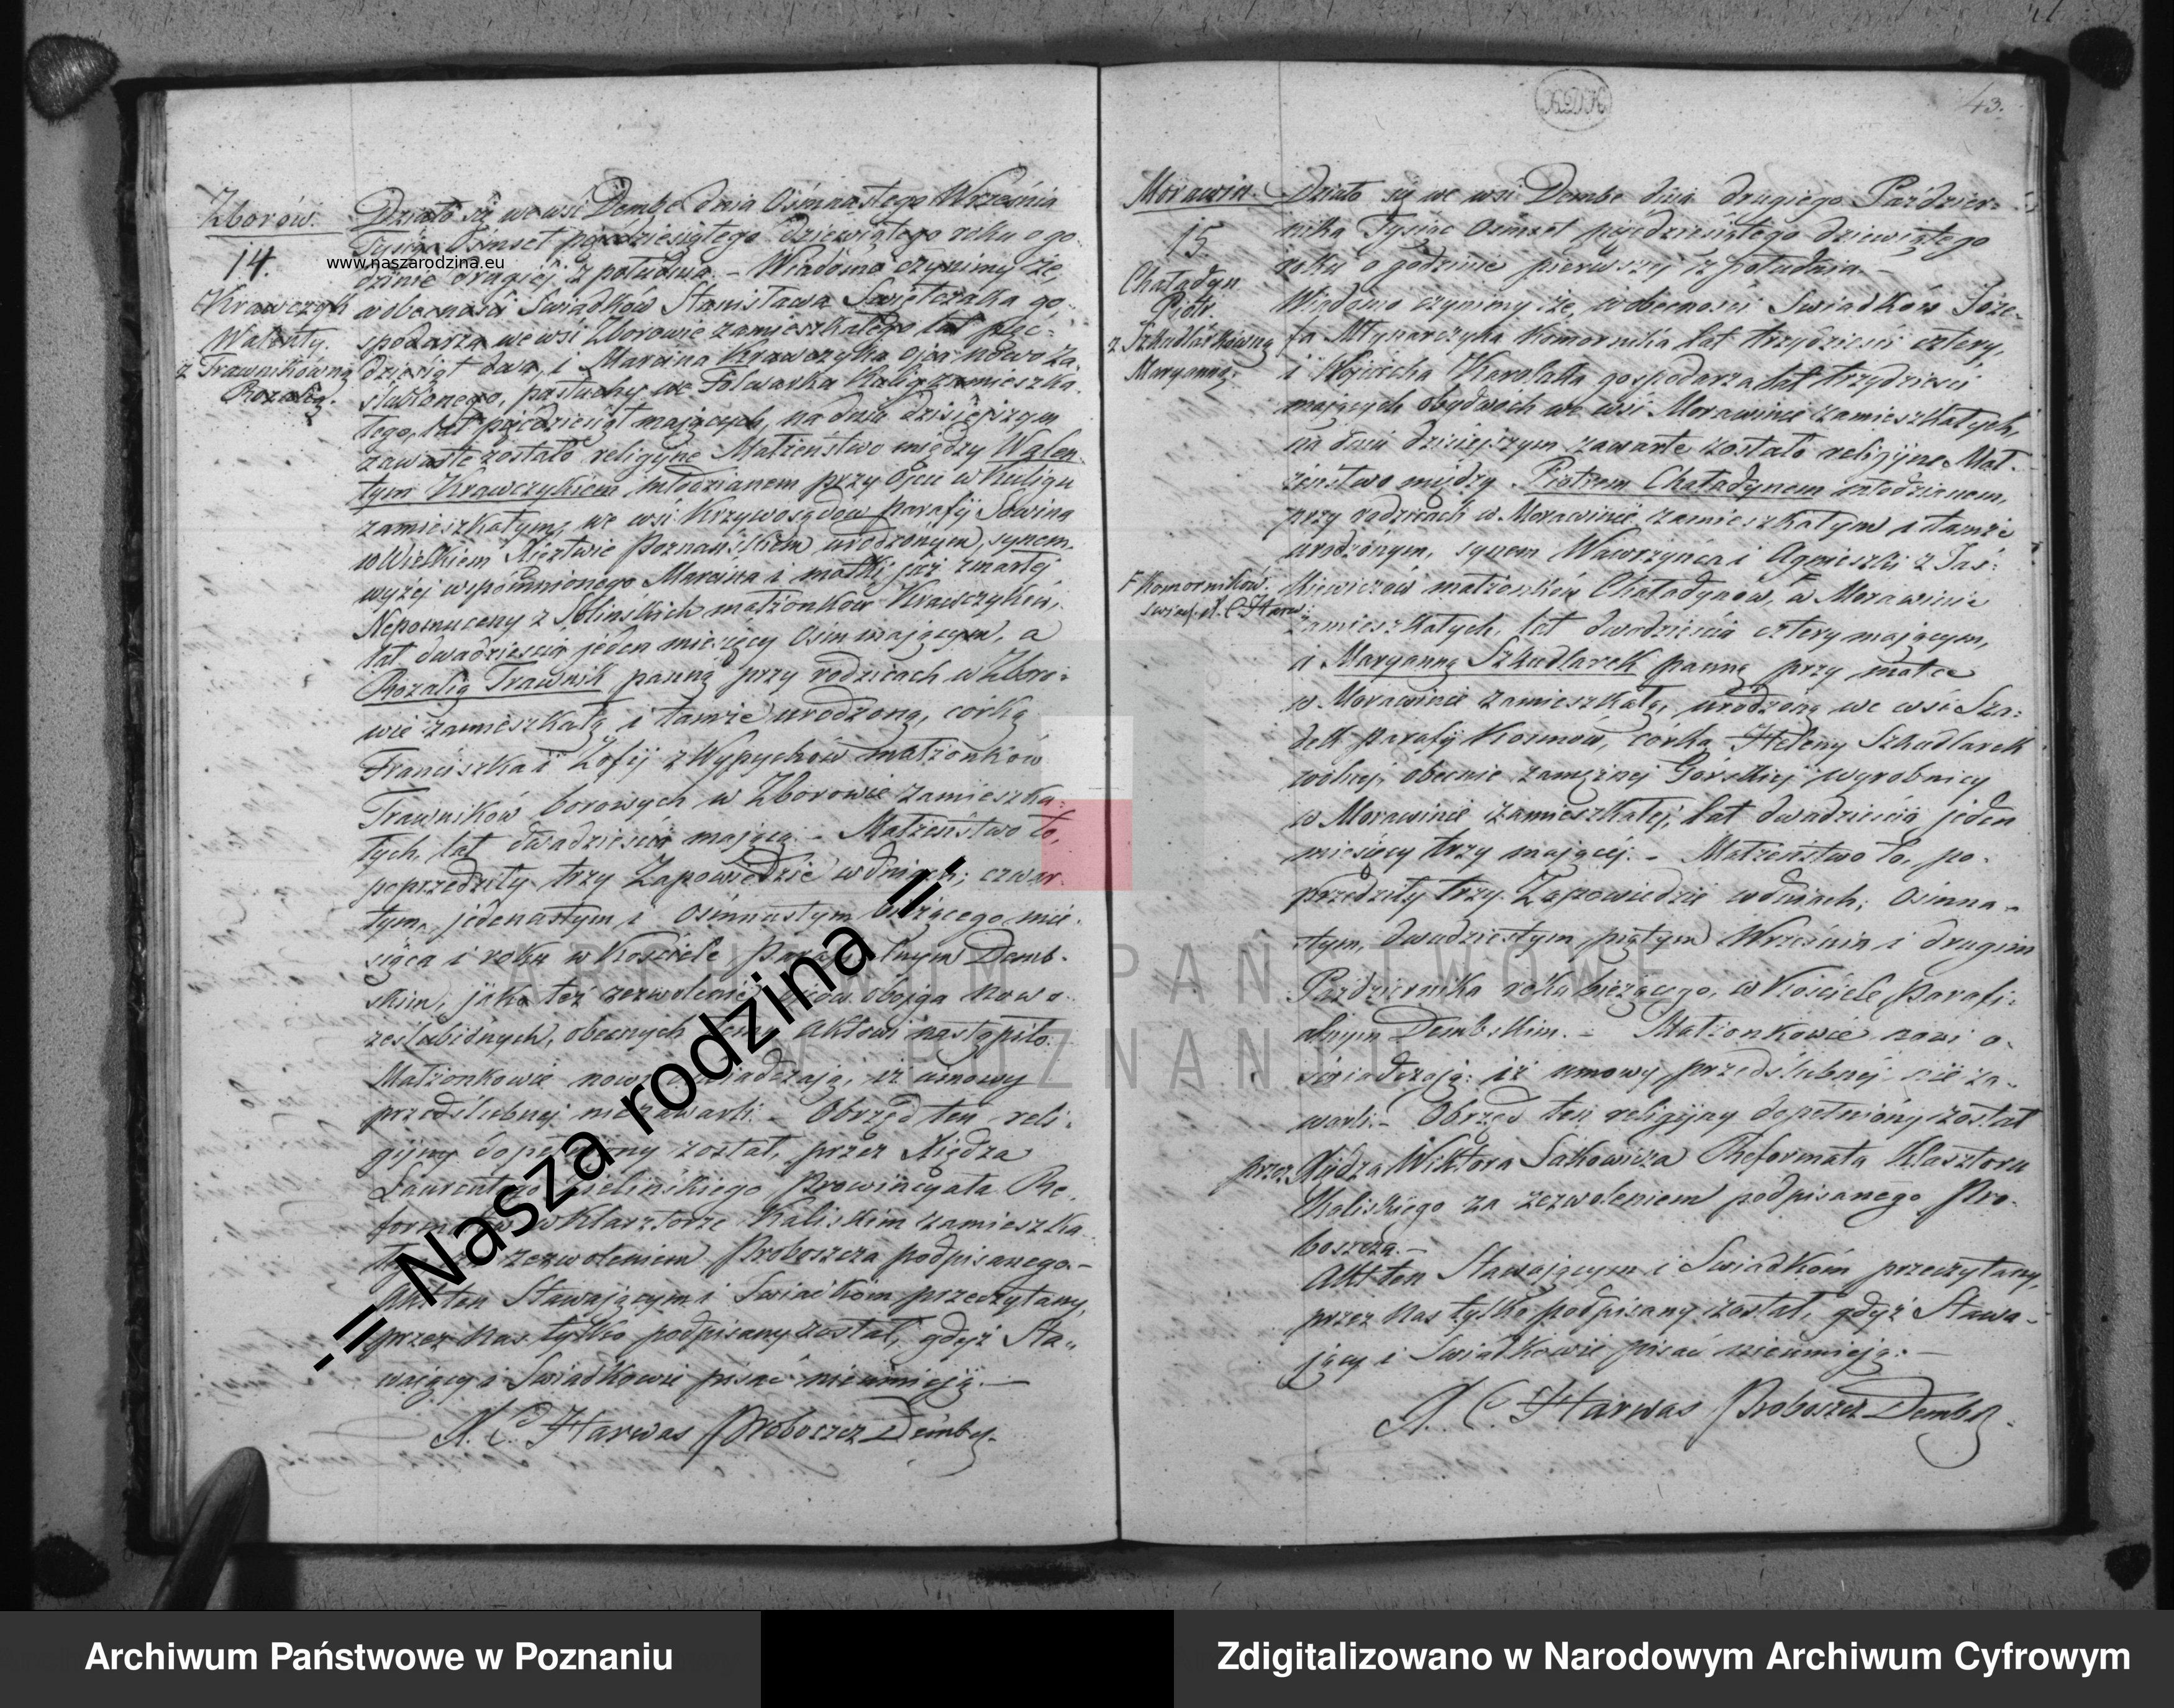 Zborów.
14.
Krawczyk
Walenty.
z Trawnikówną
Rozalią.
Działo się we wsi Dembe dnia Osimnastego Września
Tysiąc Ośmset pięcdziesiątego dziewiątego roku o go-
dzinie drugiej z południa. – Wiadomo czynimy że,
w obecności Swiadków Stanisława Swietczaka go-
spodarza we wsi Zborowie zamieszkałego lat pięć-
dziesiąt dwa, i Marcina Krawczyka ojca nowoza-
ślubionego, pastuchy we Folwarku zamieszka-
łego, lat pięćdziesiąt mających, na dniu dzisiejszym
zawarte zostało religijne Małżeństwo między Walen-
tym Krawczykiem młodzianem przy Ojcu w
zamieszkałym, we wsi Krzywosądow parafij Sowina
w Wielkiem Xięztwie Poznańskiem urodzonym, synem
wyżej wspomnionego Marcina i matki już zmarłej
Nepomuceny z Solińskich małżonków Krawczyków,
lat dwadzieścia jeden miesięcy osim mającym, a
Rozalią Trawnik panną przy rodzicach w Zboro-
wie zamieszkałą i tamże urodzoną, córką
Franciszka i Zofij z Wypychów małżonków
Trawników borowych w Zborowie zamieszka-
łych, lat dwadzieścia mającą. – Małżeństwo to,
poprzedziły trzy Zapowiedzie w dniach; czwar-
tym, jedenastym i osimnastym bieżącego mie-
siąca i roku w Kościele Parafialnym Demb-
skim, jako też zezwolenie ojców obojga nowo-
zaślubionych, obecnych temu Aktowi nastąpiło.
Małżonkowie nowi oświadczają, iż umowy
przedślubnej niezawarli. – Obrzęd ten reli-
gijny dopełniony został, przez Xiędza
Laurentego Zielińskiego Prowincyała Re-
formatów w Klasztorze Kaliskim zamieszka-
łego za zezwoleniem Proboszcza podpisanego. –
Akt ten Stawającym i Swiadkom przeczytany,
przez Nas tylko podpisany został, gdyż Sta-
wający i Swiadkowie pisać nieumieją. —
X. C. Harwas Proboszcz Dembs.
www.naszarodzina.eu
-= Nasza rodzina =-
43.
KDK
Morawin.
15.
Chaładyn
Piotr.
z Szkudlarkówną
Maryanną.
Działo się we wsi Dembe dnia drugiego Paździer-
nika Tysiąc Ośmset pięćdziesiątego dziewiątego
roku o godzinie pierwszej z południa. –
Wiadomo czynimy że, w obecności Swiadków Józe-
fa Młynarczyka Komornika lat trzydzieści cztery,
i Wojciecha Karolaka gospodarza lat trzydzieści
mających obydwoch we wsi Morawinie zamieszkałych,
na dniu dzisiejszym zawarte zostało religijne Mał-
żeństwo między Piotrem Chaładynem młodzianem,
przy rodzicach w Morawinie zamieszkałym i tamże
urodzonym, synem Wawrzyńca i Agnieszki z Jaś-
kiewiczów małżonków Chaładynów, w Morawinie
F Komorników.
zamieszkałych, lat dwadzieścia cztery mającym,
a Maryanną Szkudlarek panną przy matce
w Morawinie zamieszkałą, urodzoną we wsi Sza-
dek Parafij Kosmów, córką Heleny Szkudlarek
wolnej, obecnie zamężnej Górskiej wyrobnicy
w Morawinie zamieszkałej, lat dwadzieścia jeden
miesięcy trzy mającej. – Małżeństwo to, po-
przedziły trzy Zapowiedzie w dniach; osimna-
stym, dwudziestym piątym Września i drugim
Października roku bieżącego, w Kościele parafi-
alnym Dembskim. – Małżonkowie nowi o-
świadczają: iż umowy przedślubnej nie za-
warli. – Obrzęd ten religijny dopełniony został
przez Xiędza Wiktora Sakowicza Reformata Klasztoru
Kaliskiego za zezwoleniem podpisanego Pro-
boszcza. –
Akt ten Stawającym i Swiadkom przeczytany,
przez Nas tylko podpisany został, gdyż Stawa-
jący i Swiadkowie pisać nieumieją. —
X. C. Harwas Proboszcz Dembs.
ARCHIWUM PAŃSTWOWE
W POZNANIU
Archiwum Państwowe w Poznaniu
Zdigitalizowano w Narodowym Archiwum Cyfrowym